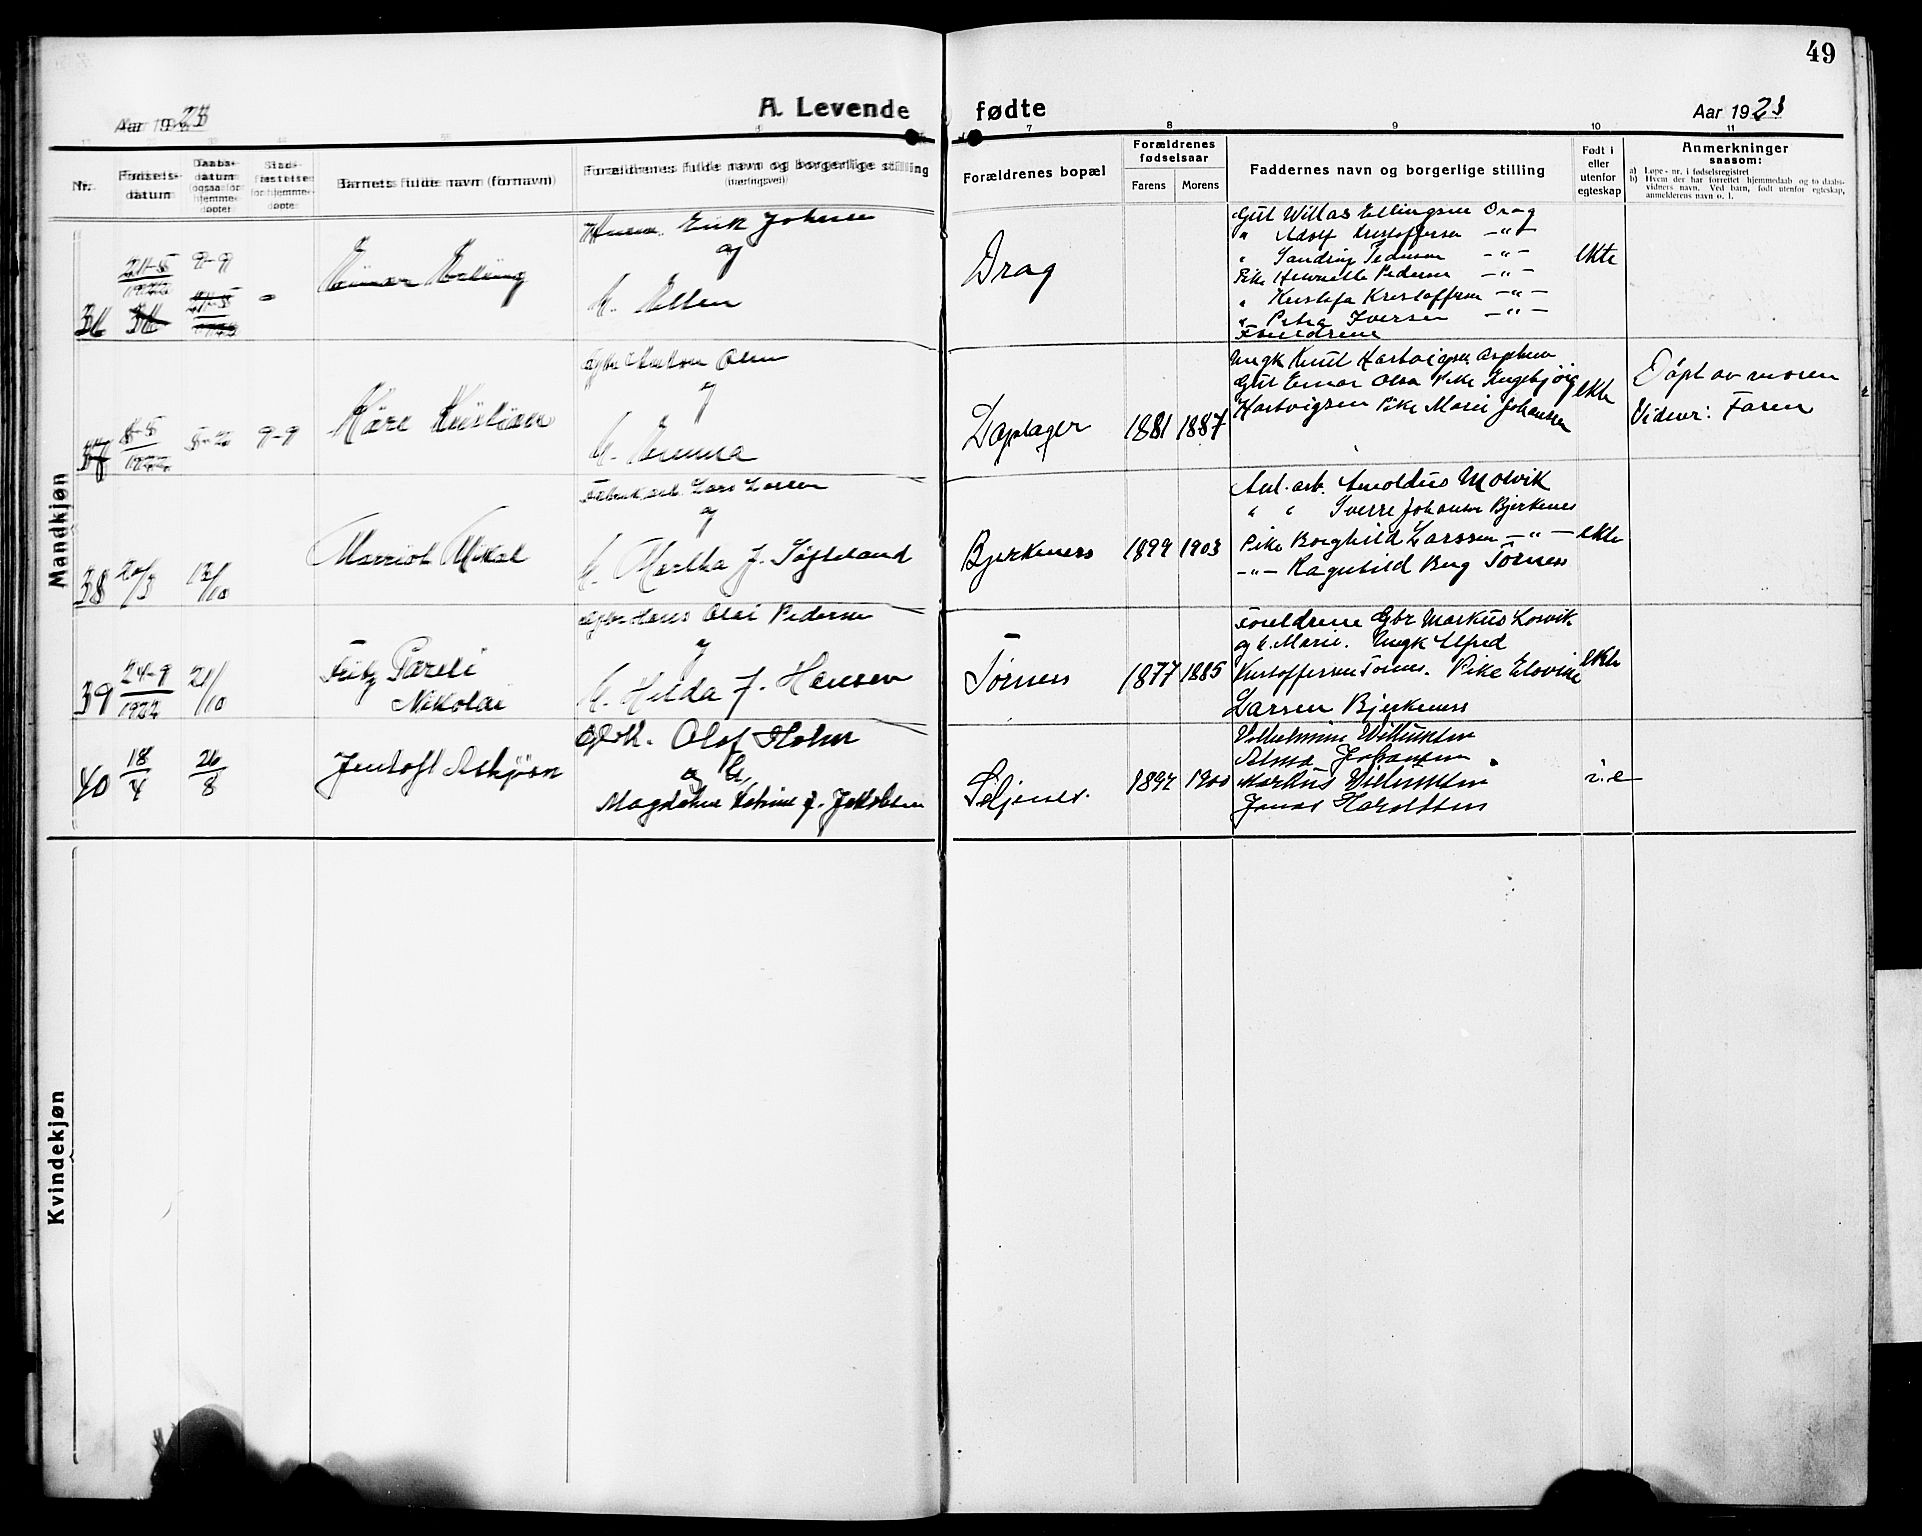 49
A. Levende fødte
Aar 1923
Aar 1923
Nr.
Fødsels-
datum
Daabs-
datum
(ogsaa for
hjemme-
døpte)
Stad-
fæstelse
for hjemme-
døpte
Barnets fulde navn (fornavn)
Forældrenes fulde navn og borgerlige stilling
(næringsvei)
7
Forældrenes bopæl
8
Forældrenes
fødselsaar
Farens
Morens
9
Faddernes navn og borgerlige stilling
10
Født i
eller
utenfor
egteskap
11
Anmerkninger
saasom:
a) Løpe-nr. i fødselsregistret
b) Hvem der har forrettet hjemmedaab og to daabs-
vidners navn. Ved barn, født utenfor egteskap,
anmelderens navn o. l.
Mandkjøn
36
9-9
Einar Erling
Erik Johnsen
og
H. Ellen
Drag
Gut Willas Ellingsen Drag
" Adolf Kristoffersen -"-
" Sandrup Pedersen -"-
Pike Henrette Pedersen -"-
" Kristofa Kristoffersen -"-
" Petra Iversen -"-
Foreldrene
ekte
37
9-9
Kåre Kristian
Gbr Anton Olsen
og
H. Emma
Daplager
1881 1887
Ungk Knut Hartvigsen
Gut Einar Olsen Pike Ingebjørg
Hartvigsen Pike Marie Johansen
ekte
Døpt av moren
Vidner: Faren
38
20/3
13/10
Marriot Mikal
Fabrikarb. Lars Larsen
og
H. Martha f. Søfteland
Bjerkenes
1899 1903
Anl. arb. Arnoldus Molvik
" " Sverre Johansen Bjerkenes
Pike Borghild Larssen -"-
-"- Ragnhild Berg Tørnes
ekte
39
24-9
1922
21/10
Fritz Pareli
Nikolai
Gbr Hans Olai Pedersen
og
H. Hilda f. Hansen
Tørnes
1877 1885
Foreldrene Gbr Markus Losvik
og h. Marie. Ungk Alfred
Kristoffersen Tørnes. Pike Elovine
Larsen Bjerkenes
ekte
40
18
4
26
8
Jentoft Asbjörn
Olof Holm
og H.
Magdalena Katrine f. Jakobsen
Seljenes
1894 1900
Vilhelmine Villumsen
Alma Johansen
Markus Villumsen
Jonas Haroldsen
i. e
Kvindekjøn